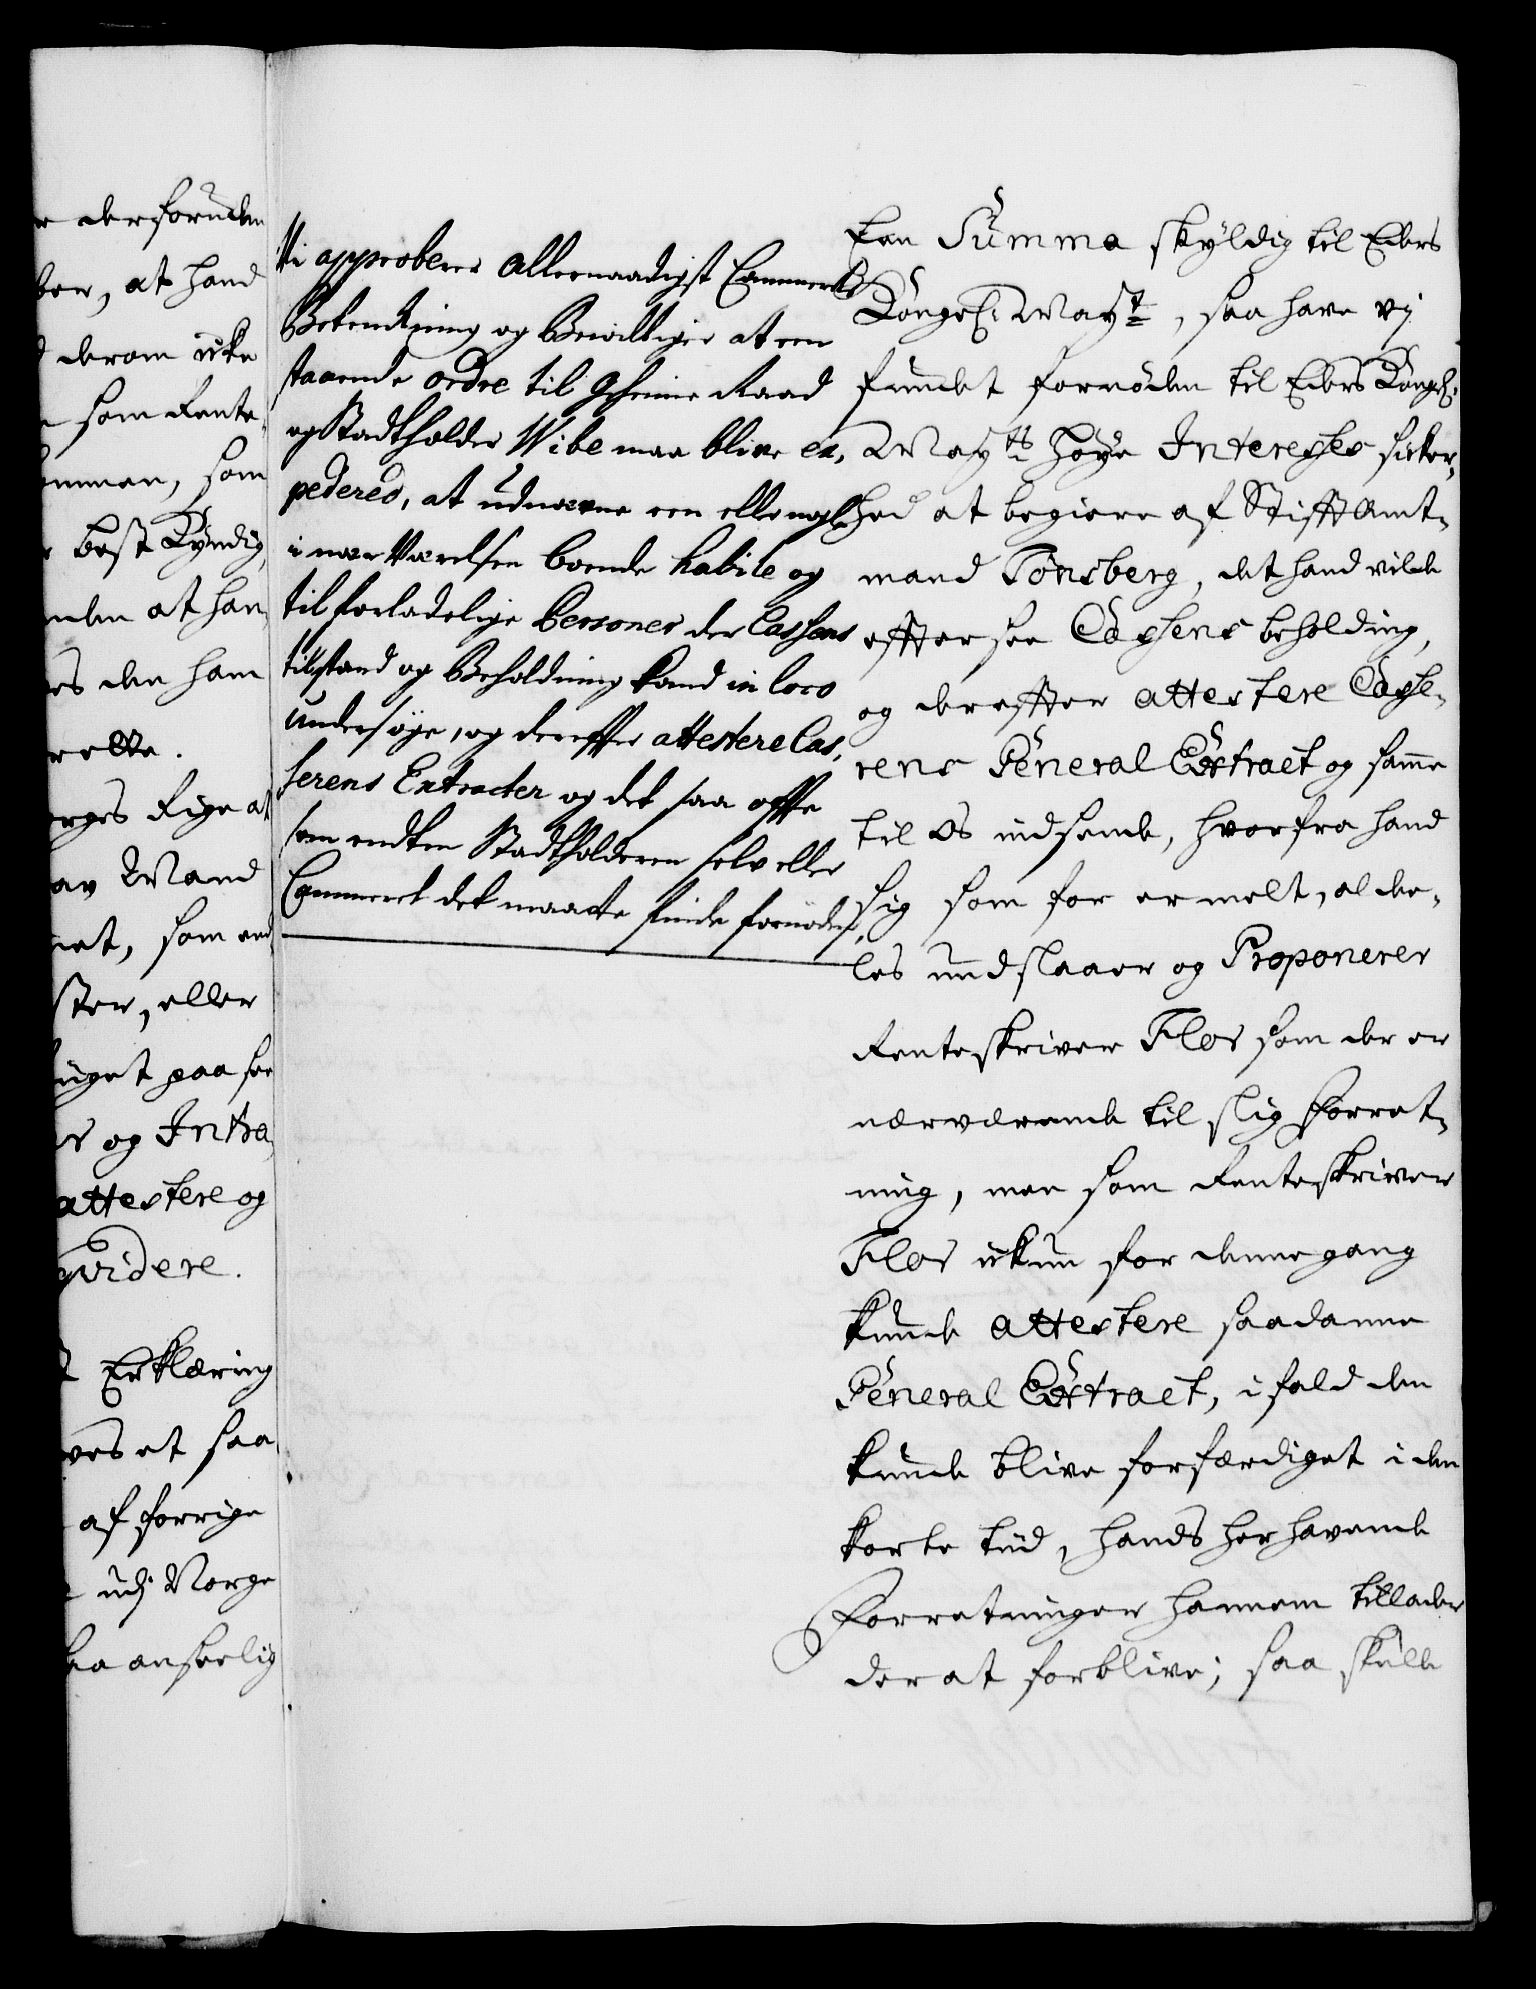 r derforuden
ber, at hand
d derom icke
som Rente-
ommen, som
r best Kyndig,
nden at han
es den ham
rette.
orges Rige at
av Mand
et, som end
ster, eller
uget paa see
s og Intra
attestere og
qvidere.
t Erklæring
ves et saa
af forrige
udj Norge
aa anseelig
Vi approberer allernaadigst Cammerets
Betenckning og Bevilliger at een
staaende ordre til Geheime Raad
og Stadtholder Wibe maa blive ex,
pederes, at udnævne een eller nogle
i nærværelsen boende habile og
tilforladelige Personer der Cassens
tilstand og Beholdning kand in loco
undersøge, og derefter attestere Cas,
serens Extracter og det saa offte
som endten Stadtholderen selv eller
Cammeret det maatte finde fornøden,
een Summa skyldig til Eders
Kongel. Mayt, saa have vj
fundet fornøden til Eders Kongel.
Mayts høye Interesses sicker,
hed at begiere af Stifftamt-
mand Tonsberg, det hand vilde
effter see Cassens beholding,
og dereffter attestere Casse-
rens General Extract og samme
til os indsende, hvorfra hand
sig som for er melt, alde,
les undslaaer og Proponerer
Renteskriver Flor som der er
nærværende til slig forret-
ning, men som Renteskriver
Flor ickun for denne gang
kunde attestere saadanne
General Extract, ifald den
kunde blive forfærdiget i den
korte tiid, hands herhavende
Forretninger hannem tillader
der at forblive; saa skulle